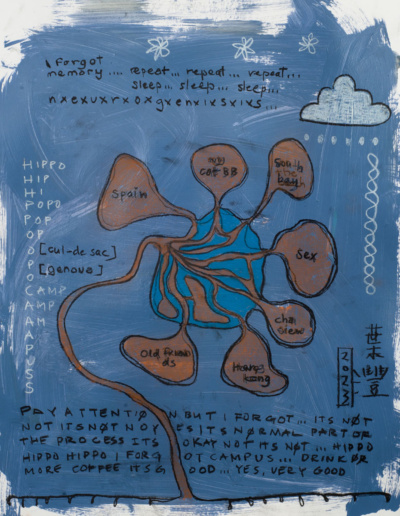 I forgot
memory .... repeat... repeat... repeat...
sleep... sleep... sleep...
nxexuxrxoxgxenxixsxixs...
HIPPO
HIP
HI
POPO
POP
OP
O [cul-de sac]
[genova]
P
O
CAMP
AMP
AM
A
PUSS
S
S
Spain
my
cat BB
South
Beach
Sex
chia
view
Hong
kong
Old Friends
ds
2023
PAY ATTENTION BUT I FORGOT... ITS NOT
NOT ITS NOT NOYES ITS NORMAL PART OR
THE PROCESS ITS OKAY NOT ITS NOT ... HIPPO
HIPPO HIPPO I FORGOT CAMPUS... DRINK OR
MORE COFFEE ITS GOOD... YES, VERY GOOD